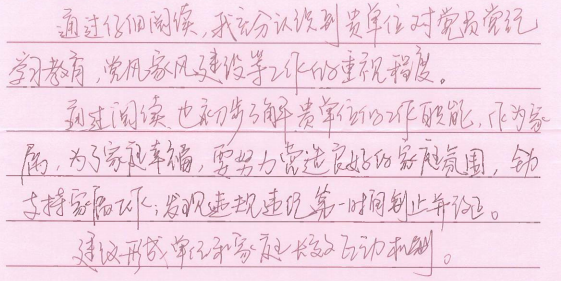 通过仔细阅读,我充分认识到贵单位对党员党纪
学习教育,党风家风建设等工作的重视程度。
通过阅读也初步了解贵单位的工作职能,作为家
属,为了家庭幸福,要努力营造良好的家庭氛围,全力
支持家属工作;发现违规违纪第一时间制止并纠正。
建议形成单位和家庭长效互动机制。